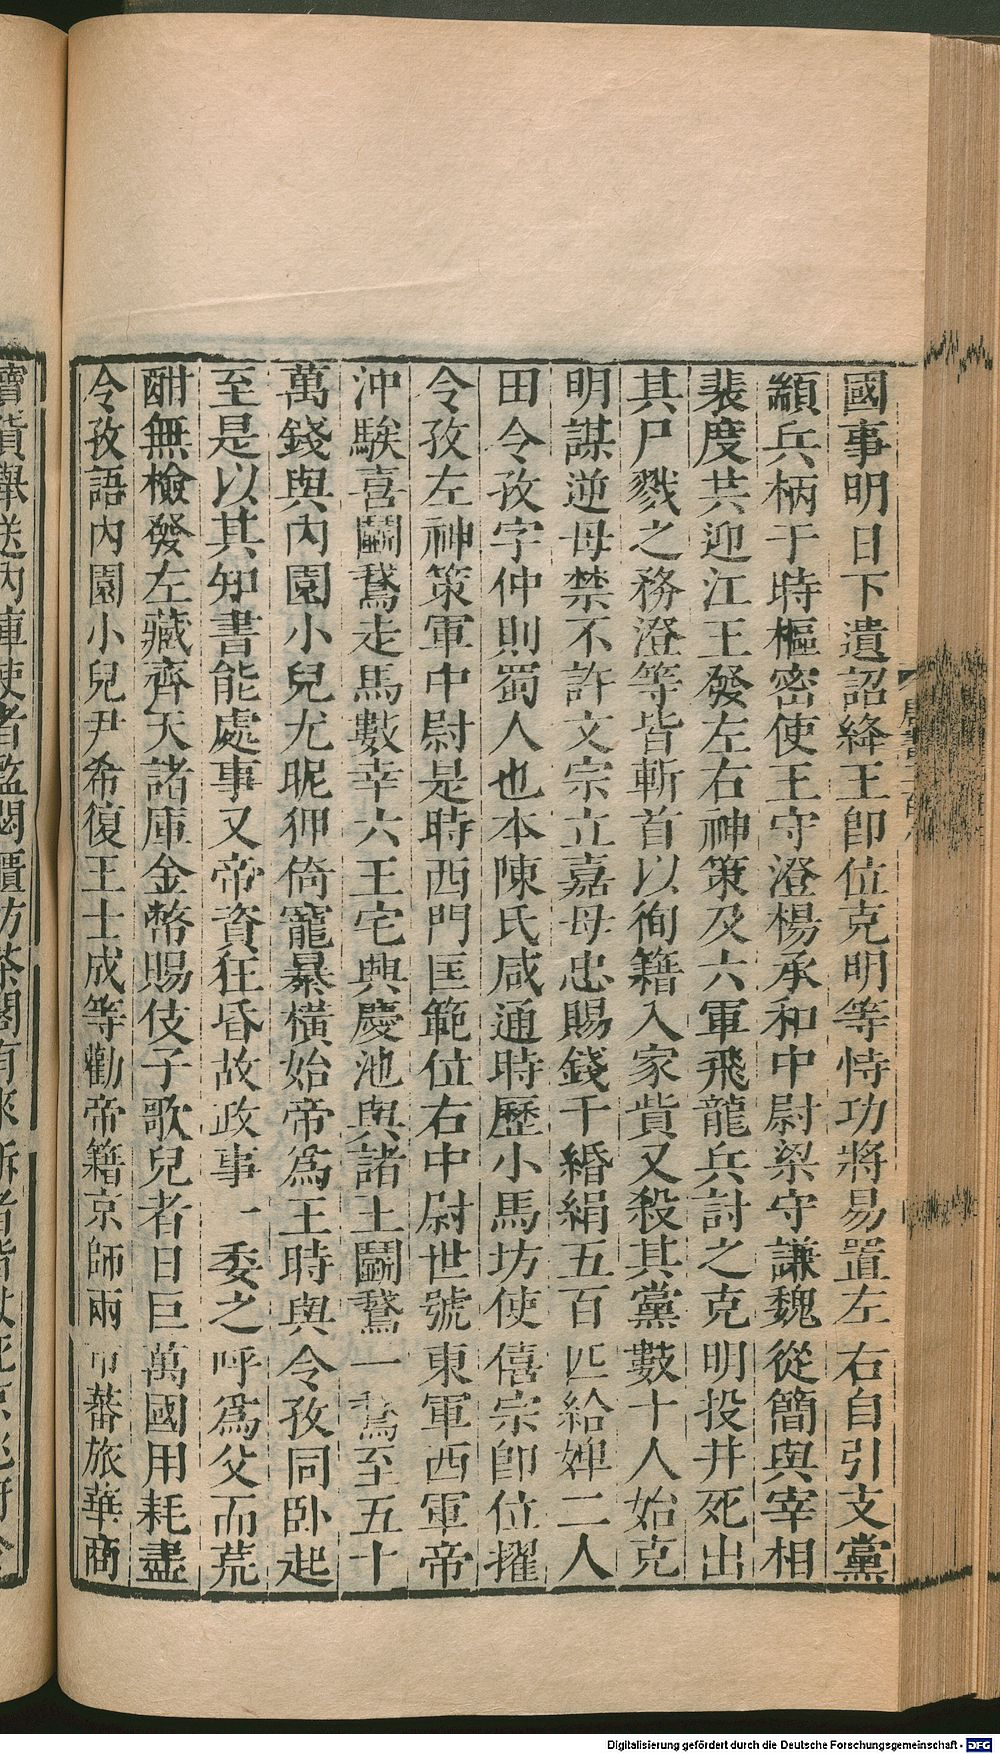 國事明日下遺詔絳王卽位克明等恃功將易置左右自引支黨
顓兵柄于時樞密使王守澄楊承和中尉梁守謙魏從簡與宰相
裴度共迎江王發左右神策及六軍飛龍兵討之克明投井死出
其尸戮之務澄等皆斬首以徇籍入家貲又殺其黨數十人始克
明謀逆母禁不許文宗立嘉母忠賜錢千緡絹五百匹給婢二人
田令孜字仲則蜀人也本陳氏咸通時歷小馬坊使僖宗卽位擢
令孜左神策軍中尉是時西門匡範位右中尉世號東軍西軍帝
沖騃喜鬬鵞走馬數幸六王宅興慶池與諸王鬬鵞一鵞至五十
萬錢與內園小兒尤昵狎倚寵暴橫始帝爲王時與令孜同臥起
至是以其知書能處事又帝資狂昏故政事一委之呼爲父而荒
酣無檢發左藏齊天諸庫金幣賜伎子歌兒者日巨萬國用耗盡
令孜語內園小兒尹希復王士成等勸帝籍京師兩市蕃旅華商
Digitalisierung gefördert durch die Deutsche Forschungsgemeinschaft - DFG